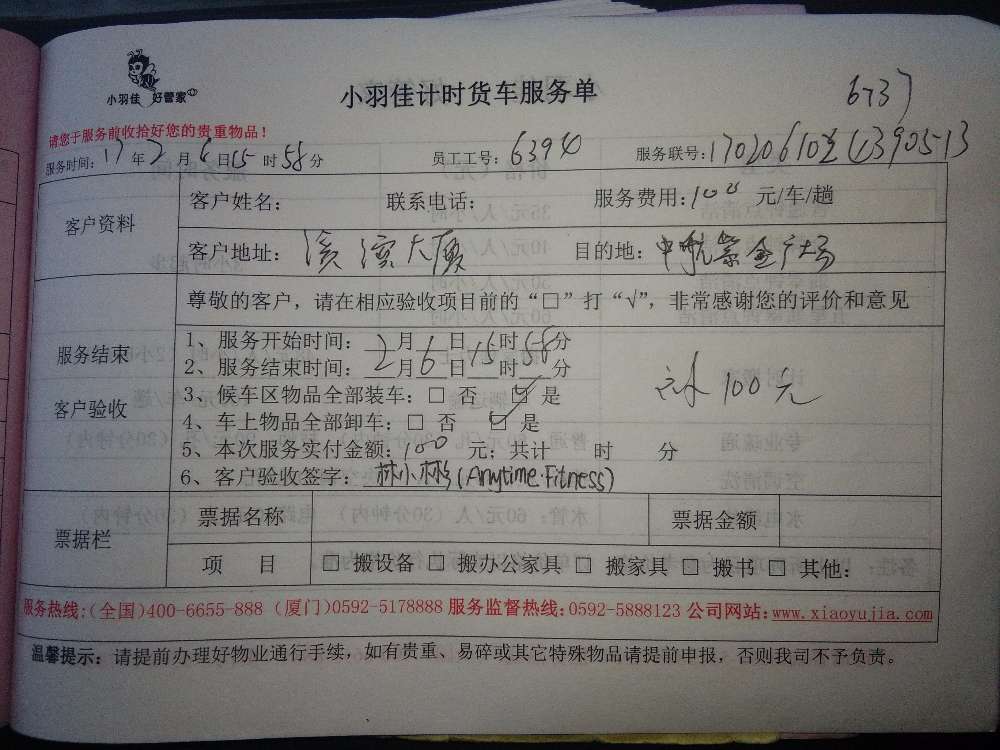 小羽佳 好管家
小羽佳计时货车服务单
6737
请您于服务前收拾好您的贵重物品！
服务时间：17年2月6日15时58分 员工工号：6394 服务联号：
客户资料
客户姓名： 联系电话： 服务费用：100元/车/趟
客户地址：滨湾大厦 目的地：中航紫金广场
尊敬的客户，请在相应验收项目前的“□”打“√”，非常感谢您的评价和意见
服务结束
客户验收
1、服务开始时间：2月6日15时58分
2、服务结束时间：2月6日15时58分
3、候车区物品全部装车：□ 否 □ 是
4、车上物品全部卸车：□ 否 ☑ 是
5、本次服务实付金额：100元；共计 时 分
6、客户验收签字：林小彬(Anytime Fitness)
100元
票据栏
票据名称 票据金额
项 目 □ 搬设备 □ 搬办公家具 □ 搬家具 □ 搬书 □ 其他：
服务热线：(全国)400-6655-888 (厦门)0592-5178888 服务监督热线：0592-5888123 公司网站：www.xiaoyujia.com
温馨提示：请提前办理好物业通行手续，如有贵重、易碎或其它特殊物品请提前申报，否则我司不予负责。